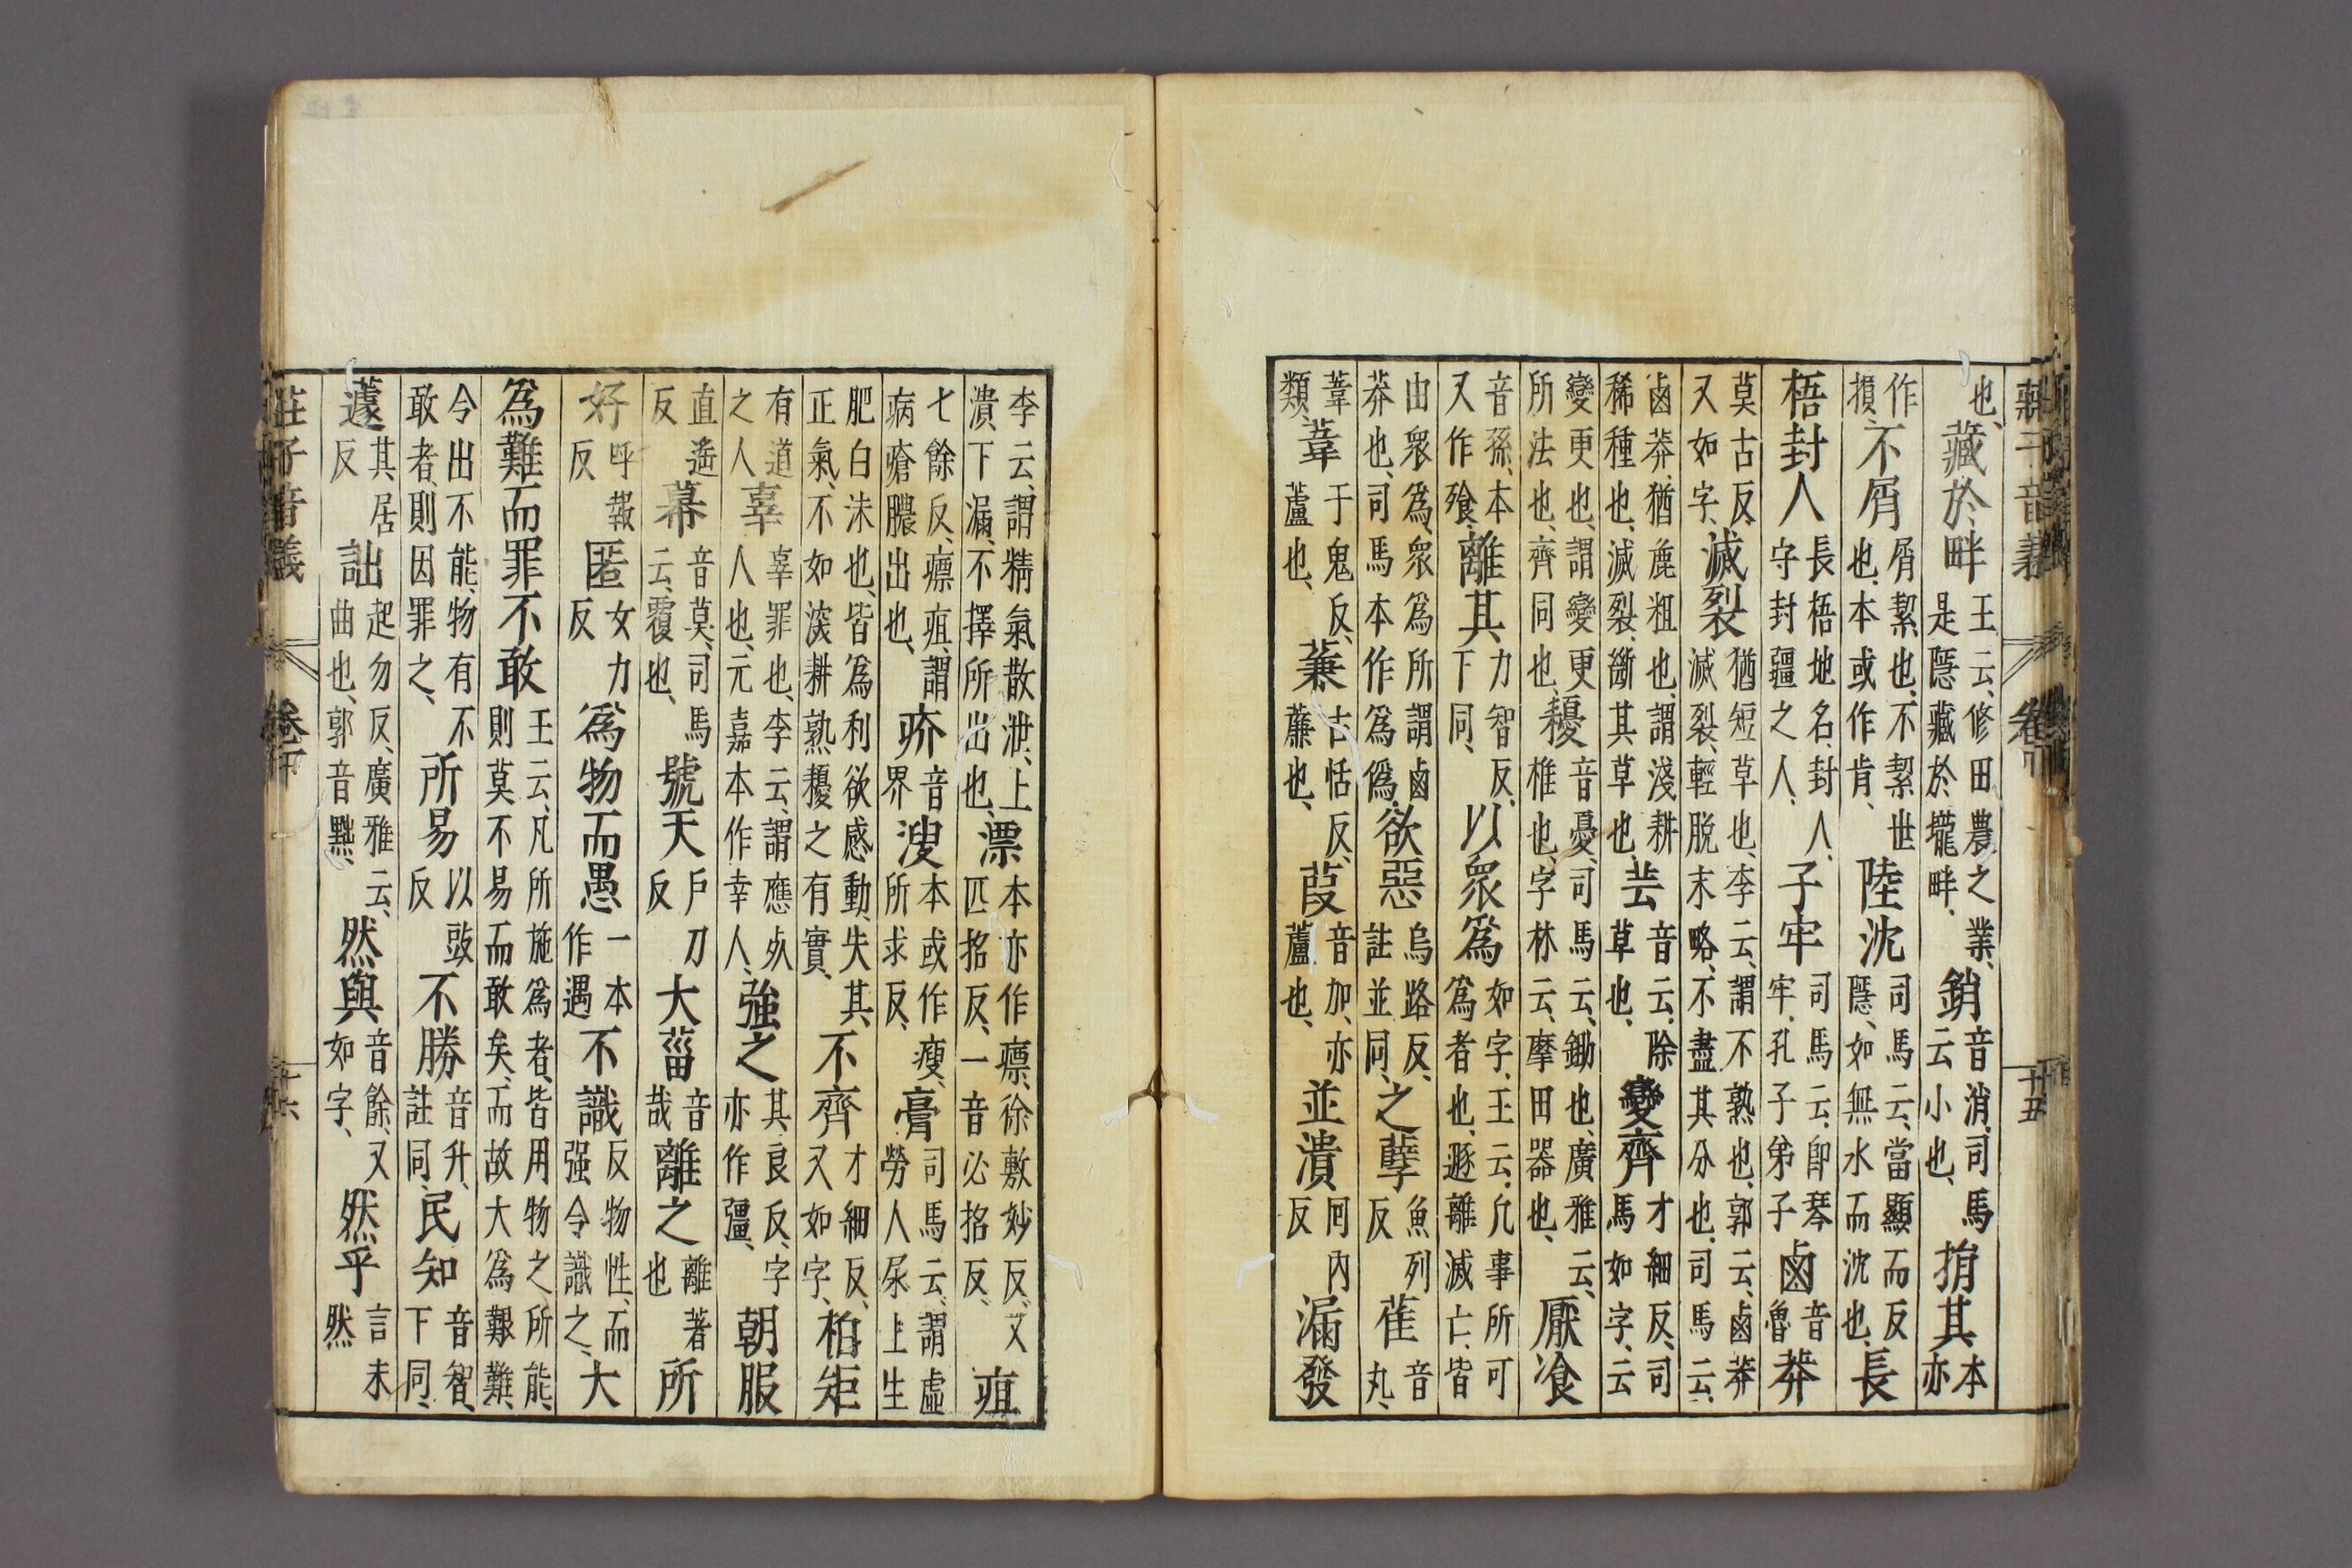 莊子音義 卷下 十五
也、藏於畔王云、修田農之業、是隱藏於壠畔、銷音消、司馬云小也、捐其本亦
作損、不屑屑絜也、不絜世也、本或作肯、陸沈司馬云、當顯而反隱、如無水而沈也、長
梧封人長梧地名、封人、守封疆之人、子牢司馬云、卽琴牢、孔子弟子鹵音魯莽
莫古反、又如字、滅裂猶短草也、李云、謂不熟也、郭云、鹵莽滅裂、輕脫末略、不盡其分也、司馬云、
鹵莽、猶麁粗也、謂淺耕稀種也、滅裂、斷其草也、芸音云、除草也、變齊才細反、司馬如字、云
變更也、謂變更所法也、齊同也、耰音憂、司馬云、鋤也、廣雅云、椎也、字林云、摩田器也、厭飡
音孫、本又作飱、離其力智反、下同、以眾爲如字、王云、凡事所可爲者也、遯離滅亡、皆
由眾爲、眾爲所謂鹵莽也、司馬本作爲僞、欲惡烏路反、註並同、之孽魚列反萑音丸、
葦類、葦于鬼反、蘆也、蒹古恬反、薕也、葭音加、亦蘆也、並潰回內反漏發
李云、謂精氣散泄、上潰下漏、不擇所出也、漂本亦作瘭、徐敷妙反、又匹招反、一音必招反、疽
七餘反、瘭疽、謂病瘡膿出也、疥音界溲本或作瘦、所求反、膏司馬云、謂虛勞人尿上生
肥白沫也、皆爲利欲感動、失其正氣、不如深耕熟耰之有實、不齊才細反、又如字、柏矩
有道之人辜辜罪也、李云、謂應死人也、元嘉本作幸人、強之其良反、字亦作彊、朝服
直遙反幕音莫、司馬云、覆也、號天戶刀反大菑音哉離之離著也所
好呼報反匿女力反爲物而愚一本作遇不識反物性、而强令識之、大
爲難而罪不敢王云、凡所施爲者、皆用物之所能、則莫不易而敢矣、而故大爲艱難、
今出不能、物有不敢者、則因罪之、所易以豉反不勝音升、註同、民知音智、下同、
蘧其居反詘起勿反、廣雅云、曲也、郭音黜、然與音餘、又如字、然乎言未然
莊子音義 卷下 十六